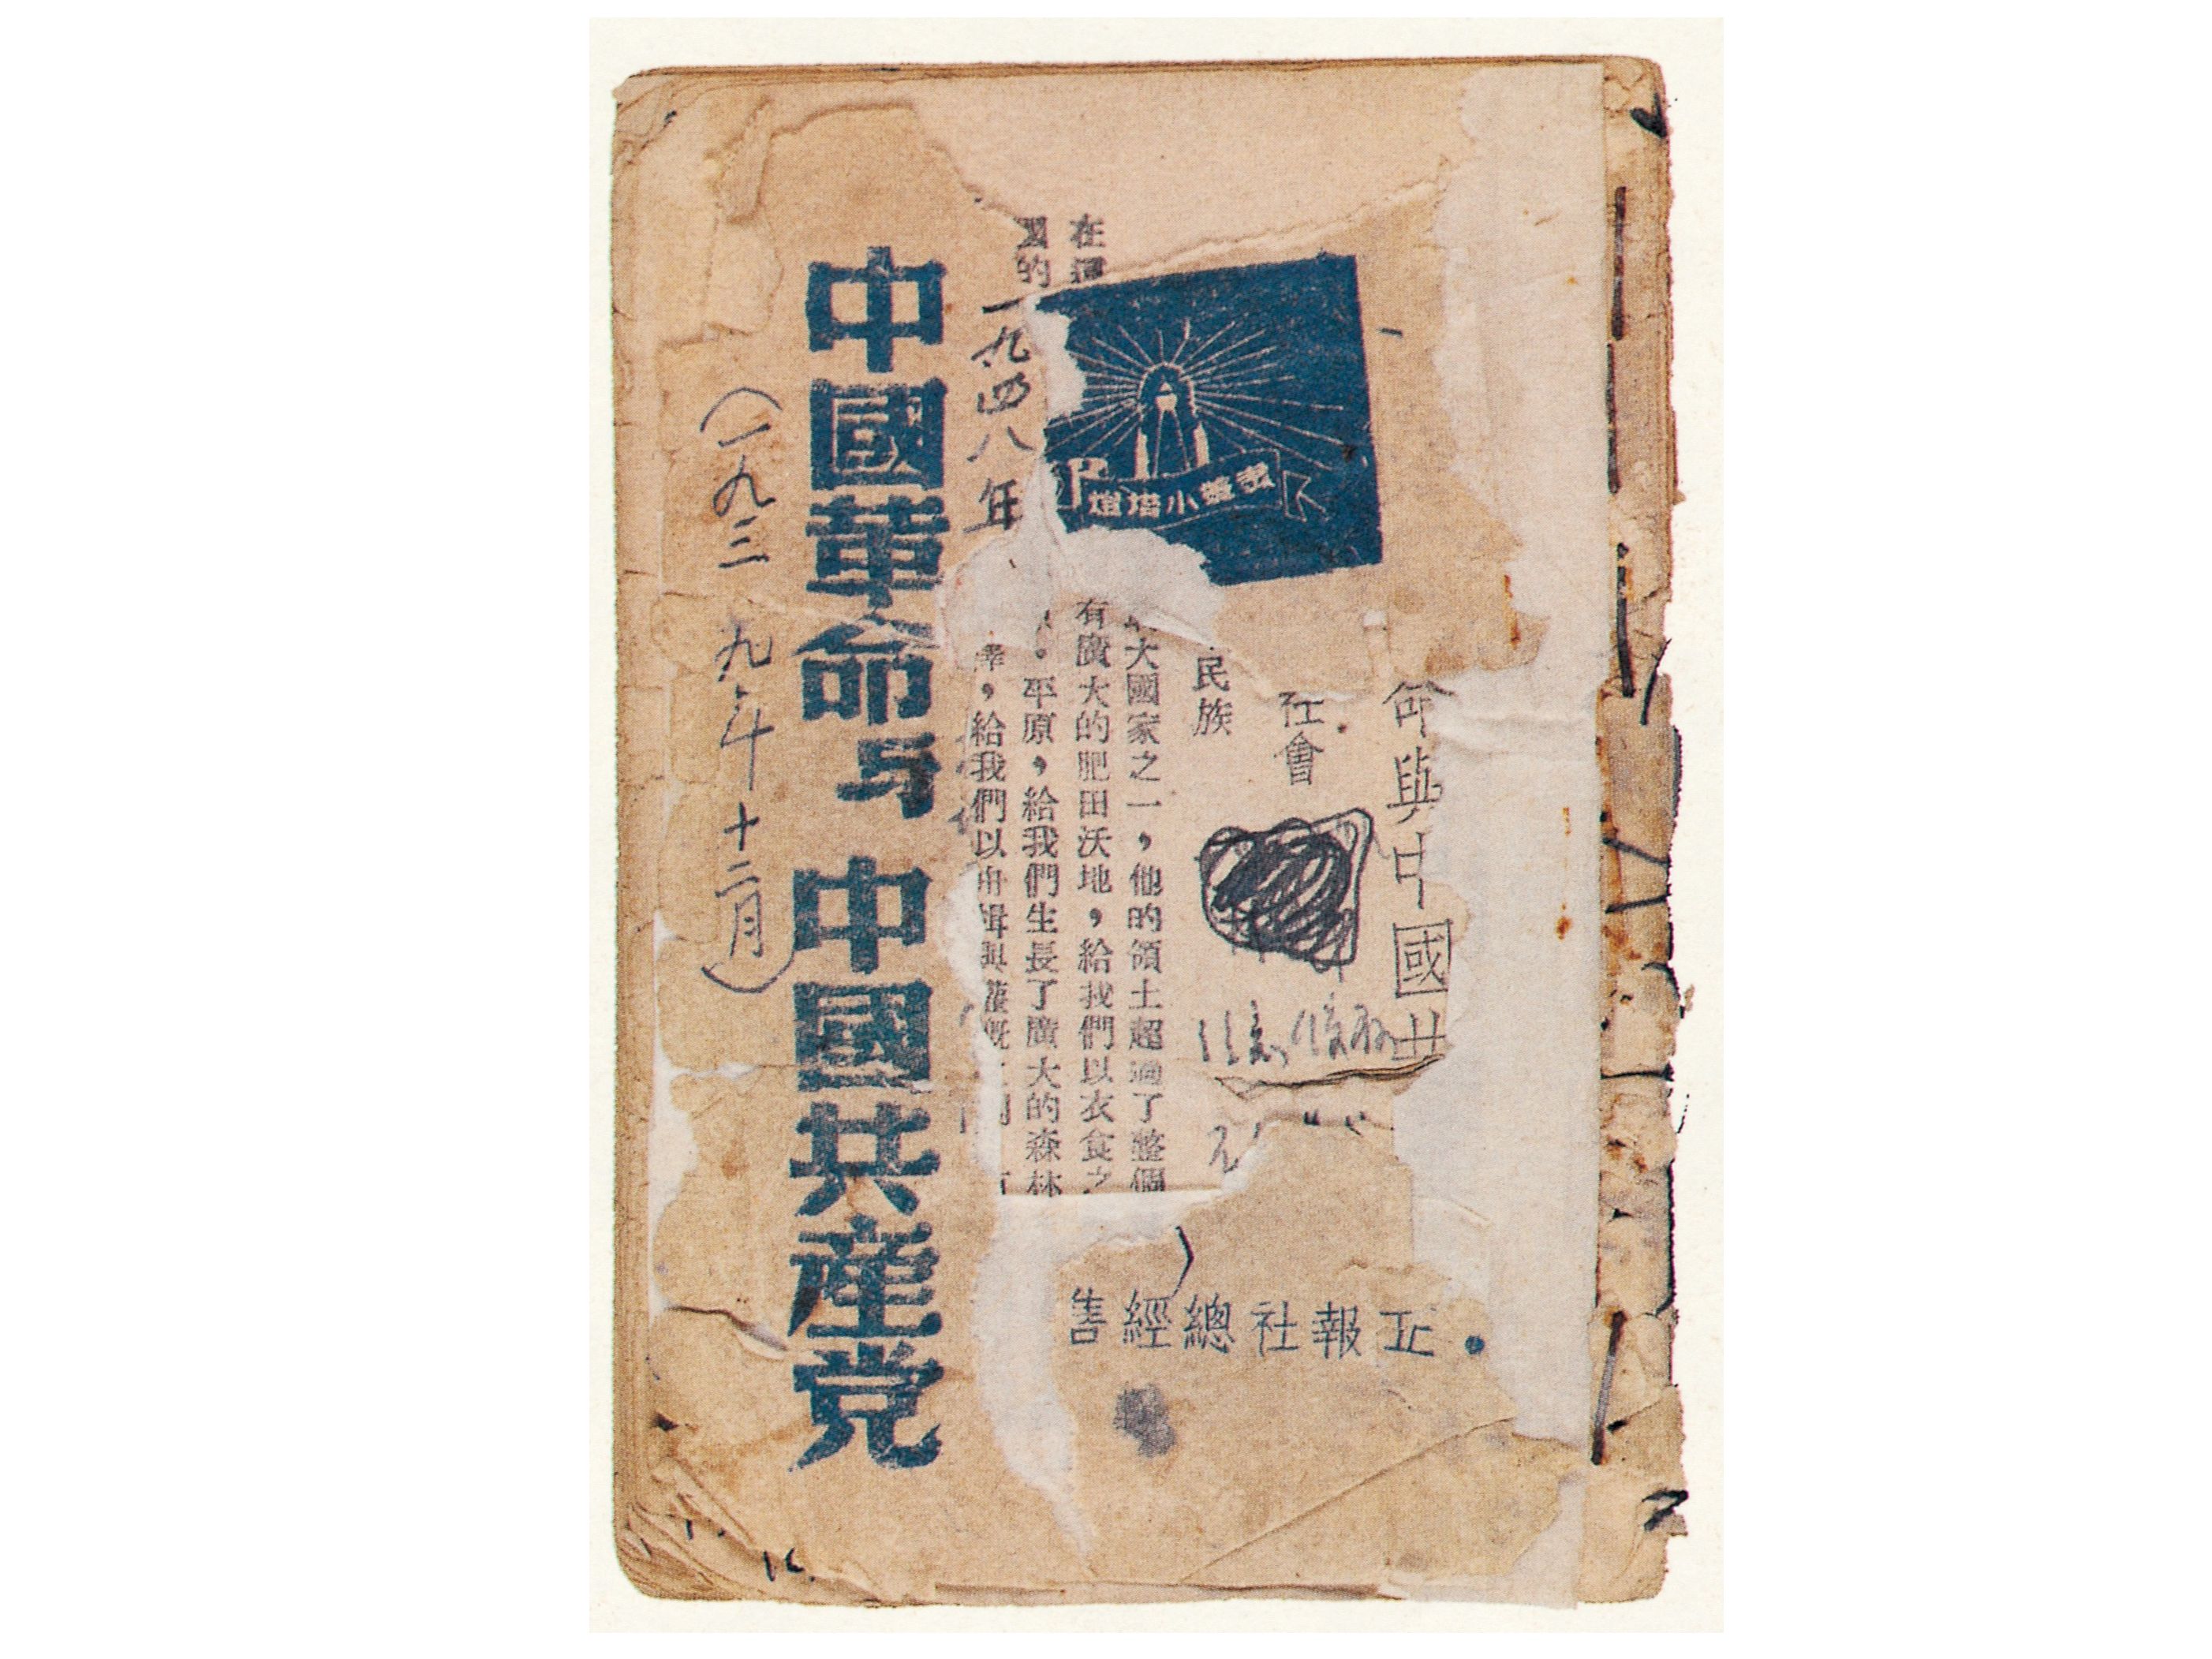 中國革命与中國共産党
(一九三九年十二月)
一九四八年
燈塔小叢書
命與中國共
社會
民族
大國家之一，他的領土超過了整個
有廣大的肥田沃地，給我們以衣食之
。平原，給我們生長了廣大的森林
，給我們以舟楫與灌溉
在
國的
正報社總經售